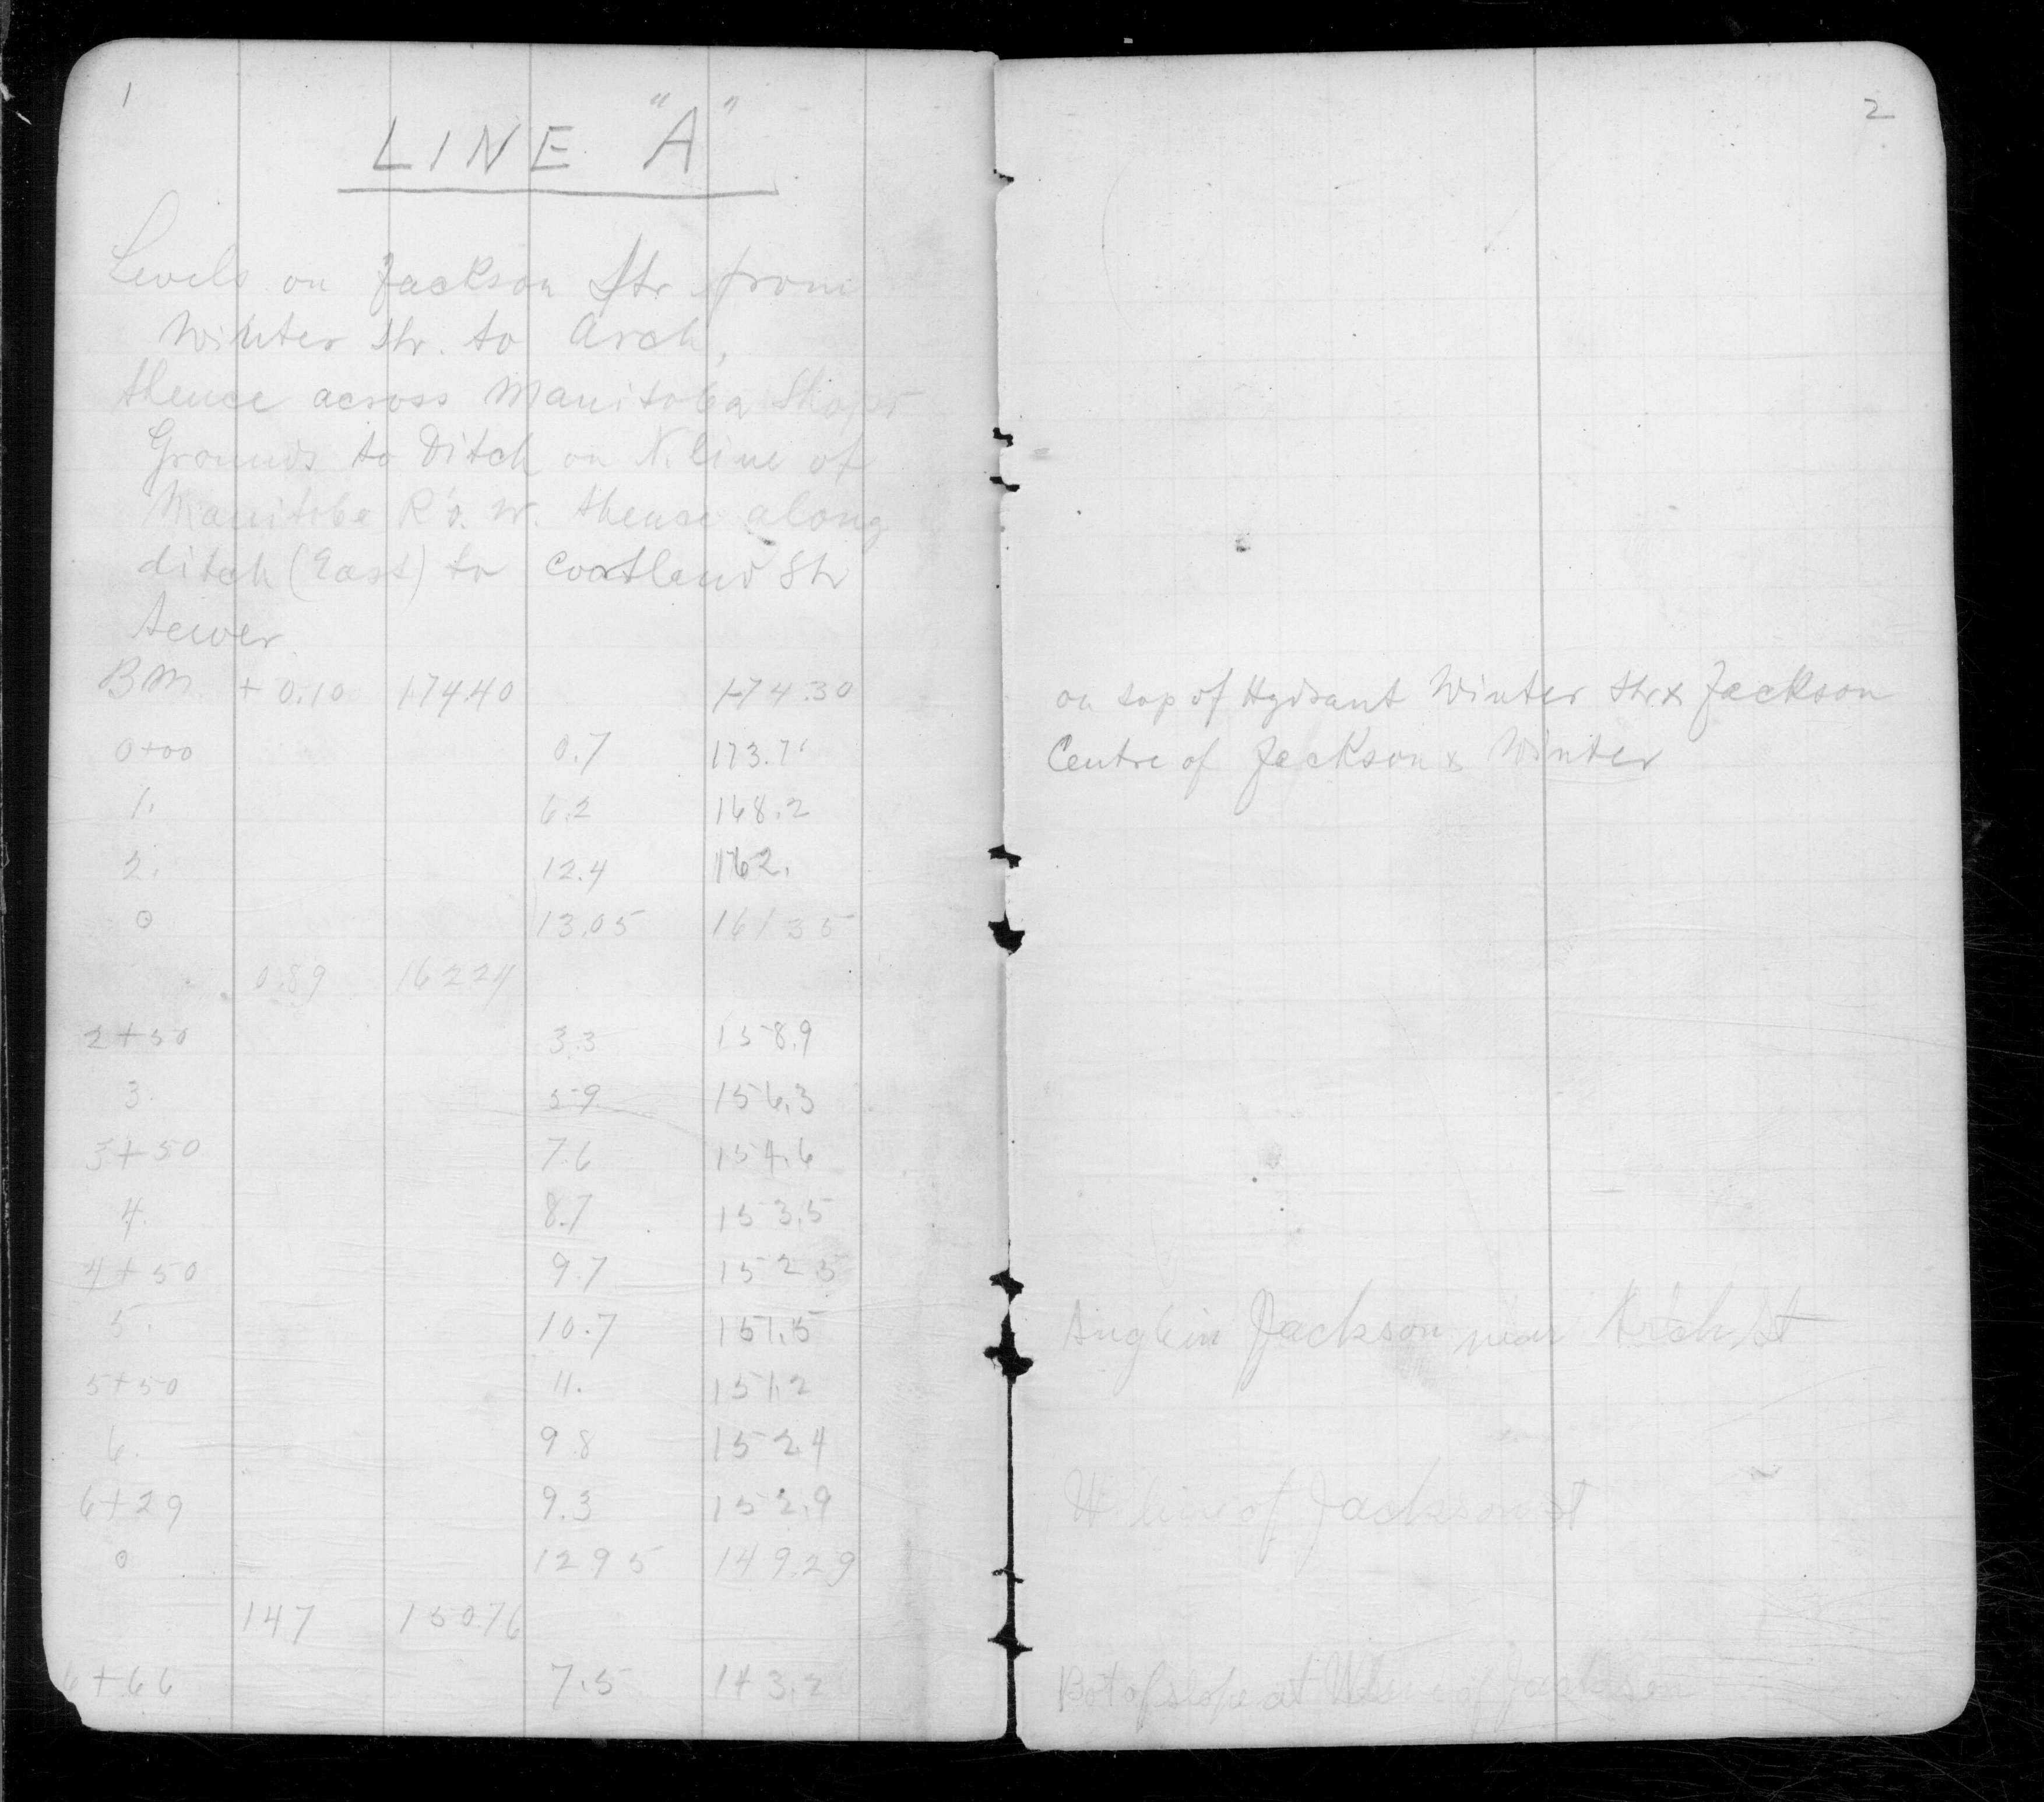 1
LINE "A"
Levels on Jackson Str from
Winter Str. to Arch,
thence across Manitoba Shops
Grounds to Ditch on N. line of
Manitoba R. o. W. thence along
ditch (East) to Coortland Str
sewer
B.M. + 0.10 174.40 174.30
0+00 0.7 173.7
1. 6.2 168.2
2. 12.4 162.
⊙ 13.05 161 35
0.89 162 24
2+50 3.3 158.9
3. 5 9 156.3
3+50 7.6 154.6
4. 8.7 153.5
4+50 9.7 152 5
5. 10.7 151.5
5+50 11. 151.2
6. 9 8 152.4
6+29 9.3 152.9
⊙ 12 9 5 149.29
1 47 150.76
6+66 7.5 143.2
2
on top of Hydrant Winter Str & Jackson
Centre of Jackson & Winter
Angle in Jackson near Arch St
W. line of Jackson St
Bot of slope at W line of Jackson